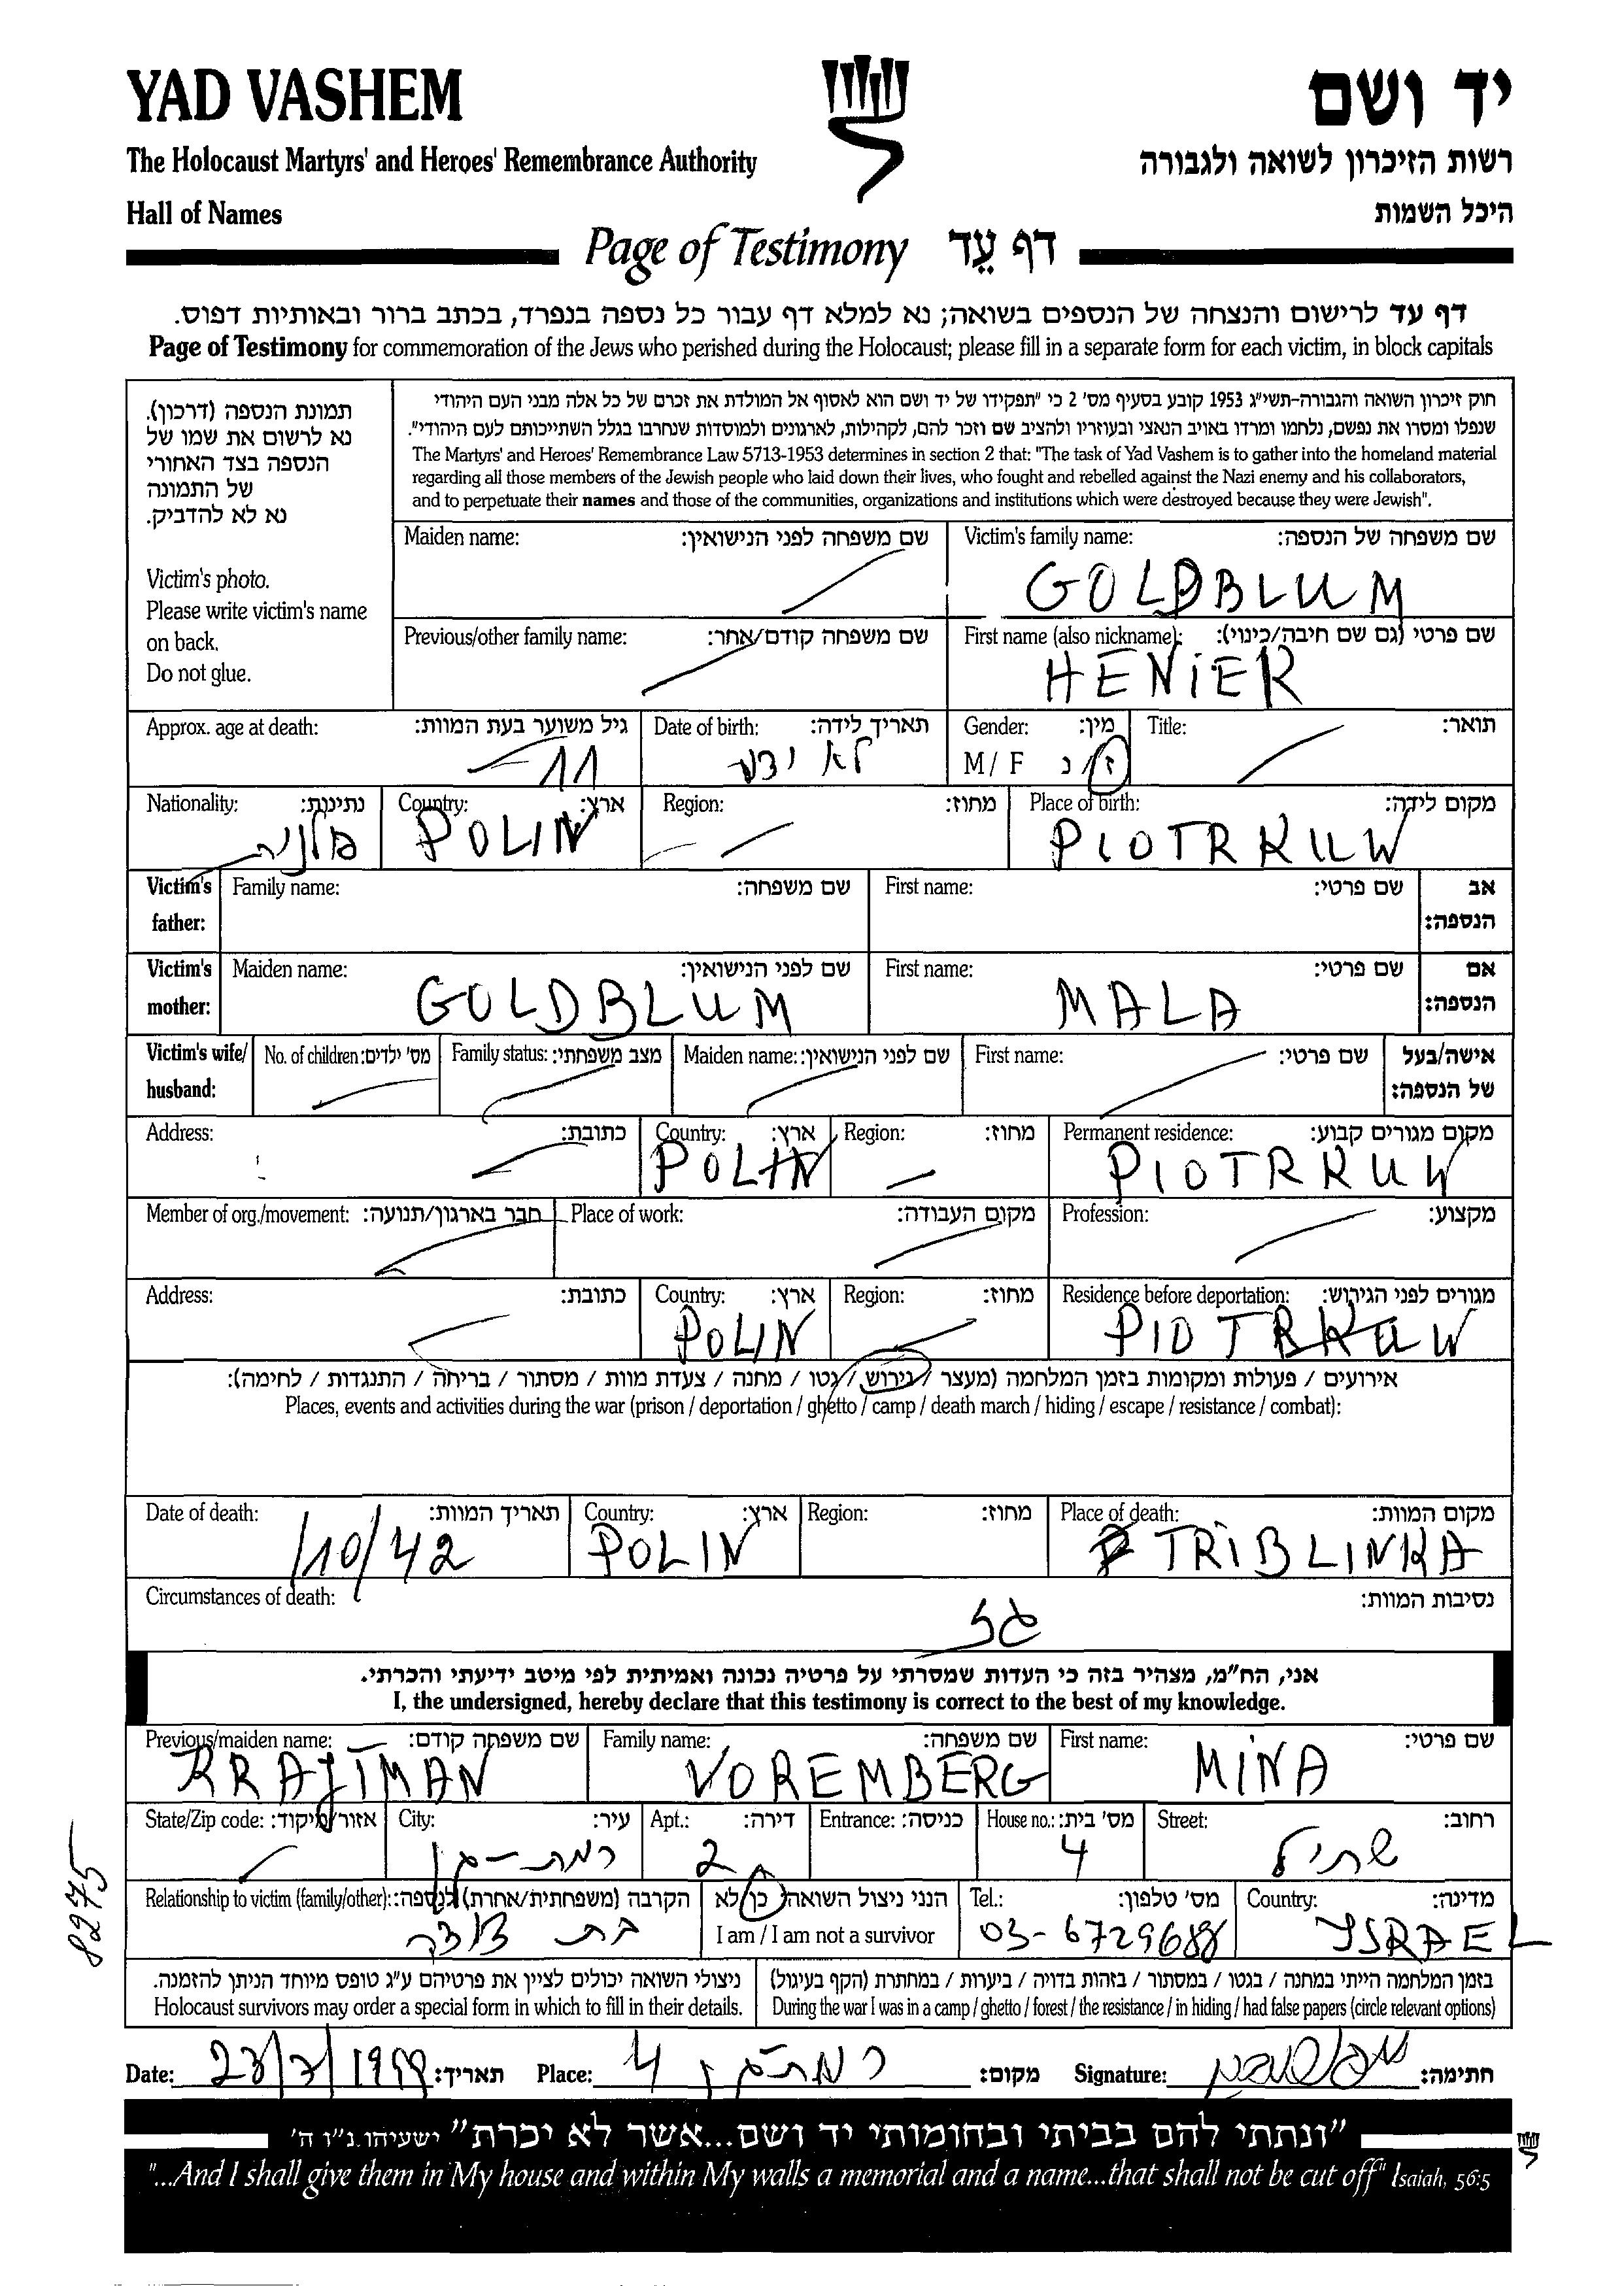 YAD VASHEM
יד ושם
The Holocaust Martyrs' and Heroes' Remembrance Authority
רשות הזיכרון לשואה ולגבורה
Hall of Names
היכל השמות
Page of Testimony דף עֵד
דף עד לרישום והנצחה של הנספים בשואה; נא למלא דף עבור כל נספה בנפרד, בכתב ברור ובאותיות דפוס.
Page of Testimony for commemoration of the Jews who perished during the Holocaust; please fill in a separate form for each victim, in block capitals
תמונת הנספה (דרכון).
נא לרשום את שמו של
הנספה בצד האחורי
של התמונה
נא לא להדביק.
Victim's photo.
Please write victim's name
on back.
Do not glue.
חוק זיכרון השואה והגבורה-תשי"ג 1953 קובע בסעיף מס' 2 כי "תפקידו של יד ושם הוא לאסוף אל המולדת את זכרם של כל אלה מבני העם היהודי
שנפלו ומסרו את נפשם, נלחמו ומרדו באויב הנאצי ובעוזריו ולהציב שם וזכר להם, לקהילות, לארגונים ולמוסדות שנחרבו בגלל השתייכותם לעם היהודי".
The Martyrs' and Heroes' Remembrance Law 5713-1953 determines in section 2 that: "The task of Yad Vashem is to gather into the homeland material
regarding all those members of the Jewish people who laid down their lives, who fought and rebelled against the Nazi enemy and his collaborators,
and to perpetuate their names and those of the communities, organizations and institutions which were destroyed because they were Jewish".
Maiden name: שם משפחה לפני הנישואין:
Victim's family name: שם משפחה של הנספה:
GOLDBLUM
Previous/other family name: שם משפחה קודם/אחר:
First name (also nickname): שם פרטי (גם שם חיבה/כינוי):
HENiER
Approx. age at death: גיל משוער בעת המוות:
11
Date of birth: תאריך לידה:
לא ידע
Gender: מין:
M / F ז / נ
Title: תואר:
Nationality: נתינות:
פולניה
Country: ארץ:
POLIN
Region: מחוז:
Place of birth: מקום לידה:
PIOTRKUW
Victim's father: Family name: שם משפחה: First name: שם פרטי: אב הנספה:
Victim's mother: Maiden name: שם לפני הנישואין: First name: שם פרטי: אם הנספה:
GOLDBLUM MALA
Victim's wife/ husband: No. of children: מס' ילדים: Family status: מצב משפחתי: Maiden name: שם לפני הנישואין: First name: שם פרטי: אישה/בעל של הנספה:
Address: כתובת: Country: ארץ: Region: מחוז: Permanent residence: מקום מגורים קבוע:
POLIN PIOTRKUW
Member of org./movement: חבר בארגון/תנועה: Place of work: מקום העבודה: Profession: מקצוע:
Address: כתובת: Country: ארץ: Region: מחוז: Residence before deportation: מגורים לפני הגירוש:
POLIN PIOTRKUW
אירועים / פעולות ומקומות בזמן המלחמה (מעצר / גירוש / גטו / מחנה / צעדת מוות / מסתור / בריחה / התנגדות / לחימה):
Places, events and activities during the war (prison / deportation / ghetto / camp / death march / hiding / escape / resistance / combat):
Date of death: תאריך המוות: Country: ארץ: Region: מחוז: Place of death: מקום המוות:
/10/42 POLIN TRiBLINKA
Circumstances of death: נסיבות המוות:
גז
אני, הח"מ, מצהיר בזה כי העדות שמסרתי על פרטיה נכונה ואמיתית לפי מיטב ידיעתי והכרתי.
I, the undersigned, hereby declare that this testimony is correct to the best of my knowledge.
Previous/maiden name: שם משפחה קודם: Family name: שם משפחה: First name: שם פרטי:
KRAJTMAN VOREMBERG MiNA
State/Zip code: אזור/מיקוד: City: עיר: Apt.: דירה: Entrance: כניסה: House no.: מס' בית: Street: רחוב:
רמת-גן 2 4 שתיל
Relationship to victim (family/other): הקרבה (משפחתית/אחרת) לנספה: הנני ניצול השואה: כן / לא Tel.: מס' טלפון: Country: מדינה:
בת דודה I am / I am not a survivor 03-6729688 ISRAEL
8275
ניצולי השואה יכולים לציין את פרטיהם ע"ג טופס מיוחד הניתן להזמנה.
Holocaust survivors may order a special form in which to fill in their details.
בזמן המלחמה הייתי במחנה / בגטו / במסתור / בזהות בדויה / ביערות / במחתרת (הקף בעיגול)
During the war I was in a camp / ghetto / forest / the resistance / in hiding / had false papers (circle relevant options)
Date: תאריך: Place: רמת גן מקום: Signature: חתימה:
"ונתתי להם בביתי ובחומותי יד ושם...אשר לא יכרת" ישעיהו נ"ו ה'
"...And I shall give them in My house and within My walls a memorial and a name...that shall not be cut off" Isaiah, 56:5